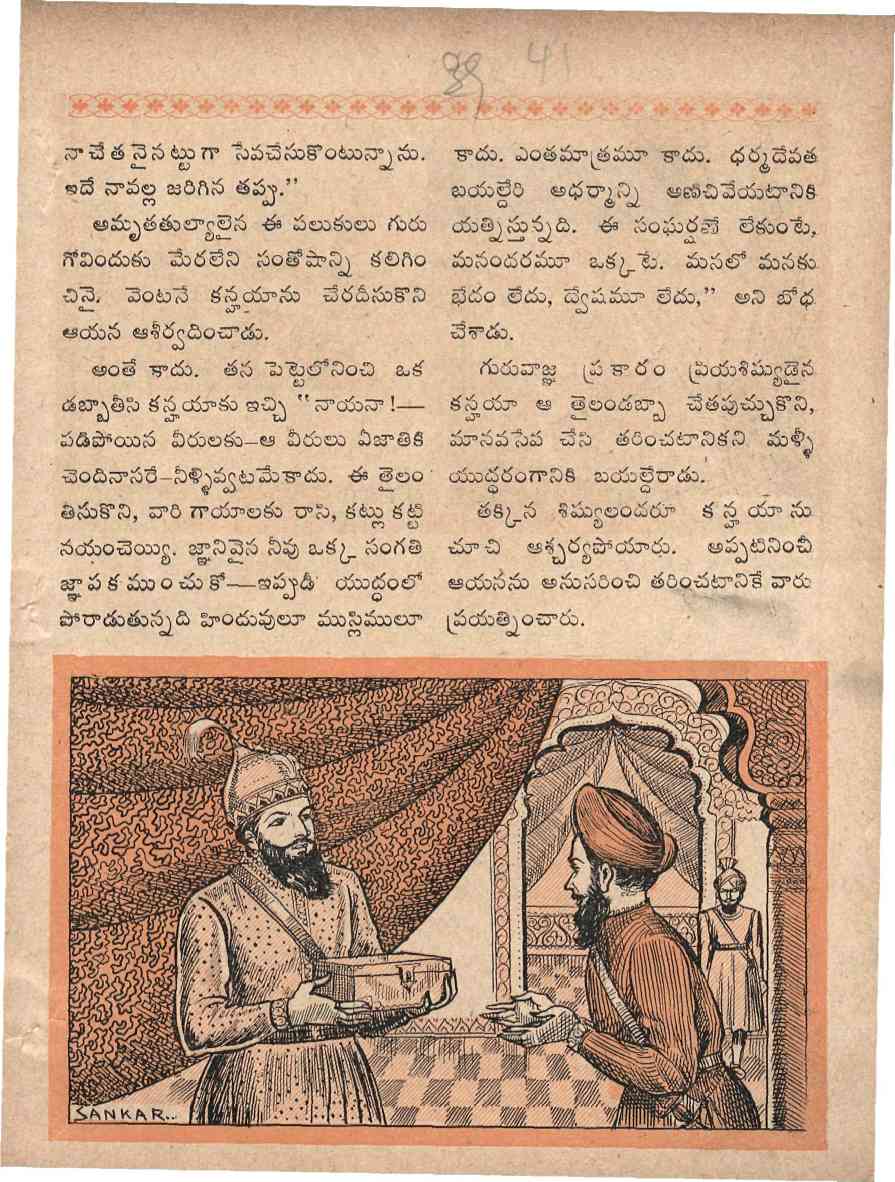 41
నాచేతనైనట్టుగా సేవచేసుకొంటున్నాను.
ఇదే నావల్ల జరిగిన తప్పు.”
అమృతతుల్యాలైన ఈ పలుకులు గురు
గోవిందుకు మేరలేని సంతోషాన్ని కలిగిం
చినై. వెంటనే కన్హయాను చేరదీసుకొని
ఆయన ఆశీర్వదించాడు.
అంతే కాదు. తన పెట్టెలోనించి ఒక
డబ్బాతీసి కన్హయాకు ఇచ్చి “నాయనా!—
పడిపోయిన వీరులకు—ఆ వీరులు ఏజాతికి
చెందినాసరే—నీళ్ళివ్వటమేకాదు. ఈ తైలం
తీసుకొని, వారి గాయాలకు రాసి, కట్లు కట్టి
నయంచెయ్యి. జ్ఞానివైన నీవు ఒక్క సంగతి
జ్ఞాపకముంచుకో—ఇప్పుడీ యుద్ధంలో
పోరాడుతున్నది హిందువులూ ముస్లిములూ
కాదు. ఎంతమాత్రమూ కాదు. ధర్మదేవత
బయల్దేరి అధర్మాన్ని అణిచివేయటానికి
యత్నిస్తున్నది. ఈ సంఘర్షణే లేకుంటే,
మనందరమూ ఒక్కటే. మనలో మనకు
భేదం లేదు, ద్వేషమూ లేదు,” అని బోధ
చేశాడు.
గురువాజ్ఞ ప్రకారం ప్రియశిష్యుడైన
కన్హయా ఆ తైలండబ్బా చేతపుచ్చుకొని,
మానవసేవ చేసి తరించటానికని మళ్ళీ
యుద్ధరంగానికి బయల్దేరాడు.
తక్కిన శిష్యులందరూ కన్హయాను
చూచి ఆశ్చర్యపోయారు. అప్పటినించీ
ఆయనను అనుసరించి తరించటానికే వారు
ప్రయత్నించారు.
SANKAR..